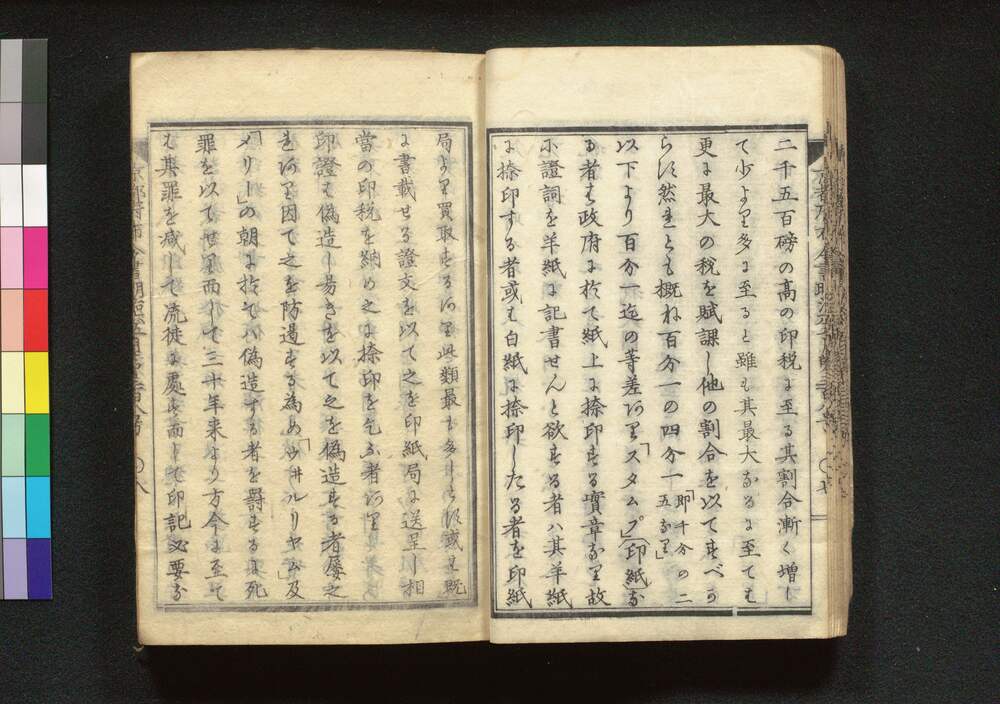 二千五百磅の高の印税に至る其割合漸く増し
て少より多に至ると雖も其最大なるに至ても
更に最大の税を賦課し他の割合を以てすべか
らず然れとも概ね百分一の四分一「即千分の二五なり」
以下より百分一迄の等差あり「スタムプ」(印紙な
る者は政府に於て紙上に捺印する實章なり故
に證詞を羊紙に記書せんと欲する者ハ其羊紙
に捺印する者或は白紙に捺印したる者を印紙
局より買取するあり此類最も多しらず或は既
に書載せる證文を以て之を印紙局に送呈し相
當の印税を納め之に捺印を乞ふ者あり
印證は偽造し易きを以て之を偽造する者屡之
れあり因て之を防過する為め「ウ井ルリヤム」及
「メリー」の朝に於てハ偽造する者を罸するに死
罪を以てせり而して三十年来より方今に至て
も其罪を減して流徒に處す而して印記必要な